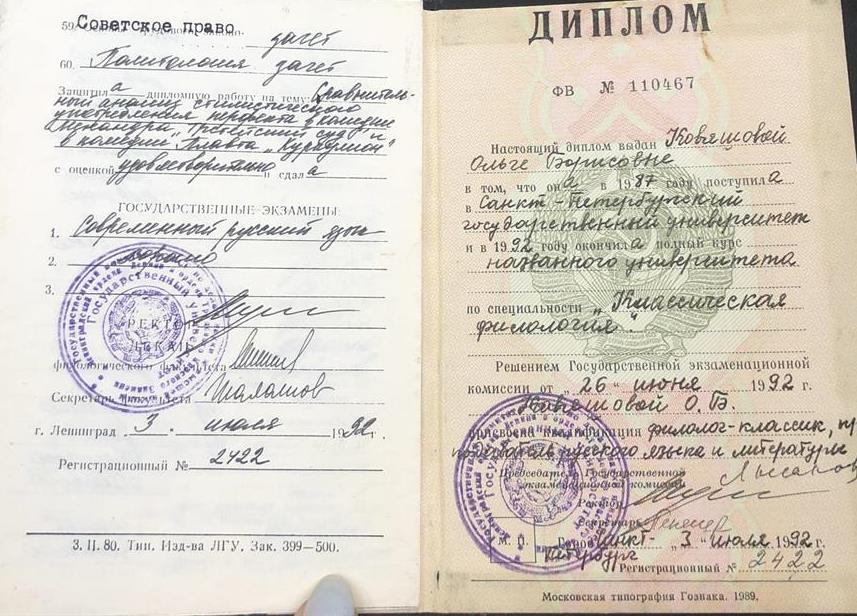 59. Советское право зачет
60. Политология зачет
Защитила дипломную работу на тему: Сравнитель-
ный анализ стилистического
употребления перфекта в комедии
Менандра „Третейский суд“ и
в комедии Плавта „Куркулион“
с оценкой удовлетворительно и сдала
ГОСУДАРСТВЕННЫЕ ЭКЗАМЕНЫ:
1. Современный русский язык
2. хорошо
3.
РЕКТОР
ДЕКАН
филологического факультета
Секретарь факультета Шаламов
г. Ленинград 3. июля 1992 г.
Регистрационный № 2422
3. II. 80. Тип. Изд-ва ЛГУ. Зак. 399—500.
ДИПЛОМ
ФВ № 110467
Настоящий диплом выдан Ковяшовой
Ольге Борисовне
в том, что она в 1987 году поступила
в Санкт-Петербургский
государственный университет
и в 1992 году окончила полный курс
названного университета
по специальности „Классическая
филология“.
Решением Государственной экзаменационной
комиссии от „26“ июня 1992 г.
Ковяшовой О.Б.
присвоена квалификация филолог-классик, пре
подаватель русского языка и литературы
Председатель Государственной
экзаменационной комиссии
Ректор
Секретарь
М. П. Город Санкт- „3“ июля 1992 г.
Петербург
Регистрационный № 2422
Московская типография Гознака. 1989.